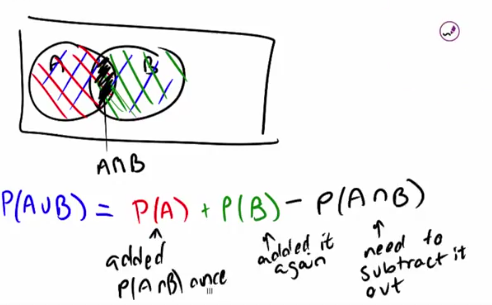 A B
A∩B
P(A∪B) = P(A) + P(B) - P(A∩B)
added
P(A∩B) once
added it
again
need to
subtract it
out